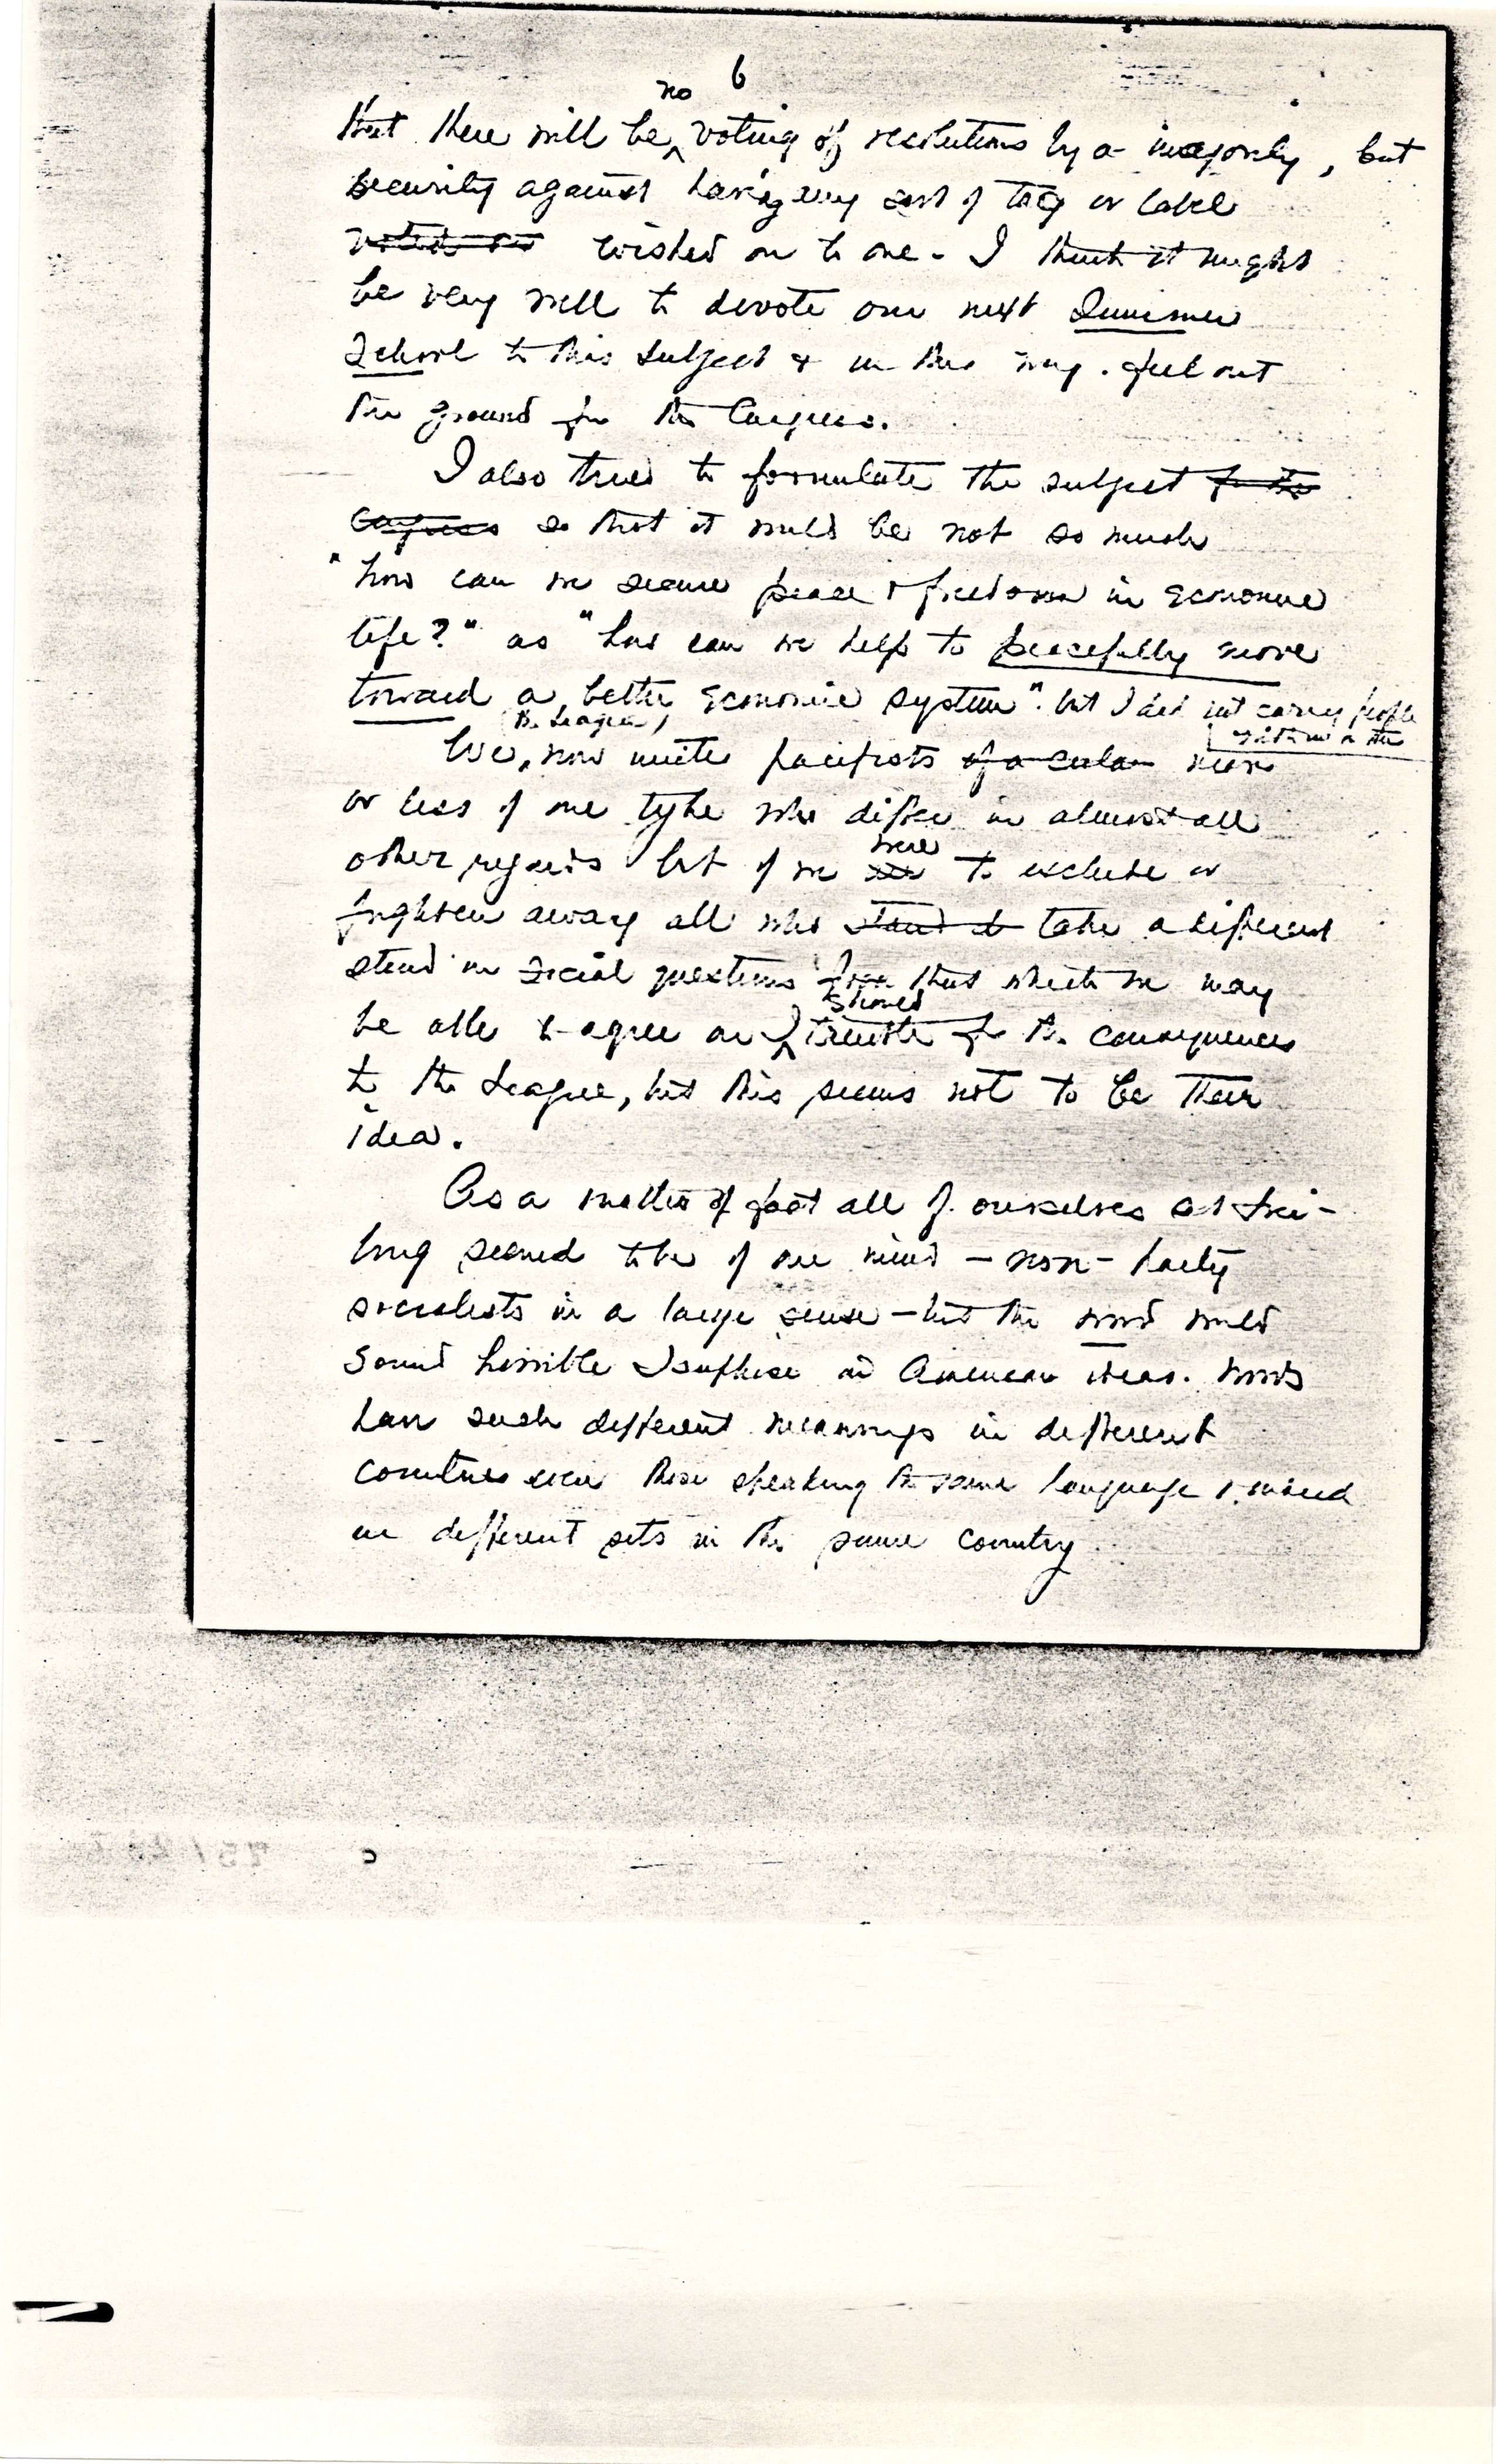 6
no
that there will be voting of resolutions by a majority, but
security against having any sort of tag or label
voted on wished on to one - I think it might
be very well to devote our next Summer
School to this subject & in this way feel out
the ground for the Congress.
I also tried to formulate the subject for the
Congress so that it would be not so much
"how can we secure peace & freedom in economic
life?" as "how can we help to peacefully move
toward a better economic system". but I did not carry people
with me in this
the League,
We, now unite pacifists of a more
or less of one type who differ in almost all
other regards but if we
were
to exclude or
frighten away all who stand take a different
stand in social questions from that which we may
should
be able to agree on I tremble for the consequences
to the League, but this seems not to be their
idea.
As a matter of fact all of ourselves at Frei-
burg seemed to be of one mind - non-party
socialists in a large sense - but the word would
sound horrible I suppose in American ears. Words
have such different meanings in different
countries even those speaking the same language & indeed
in different sets in the same country